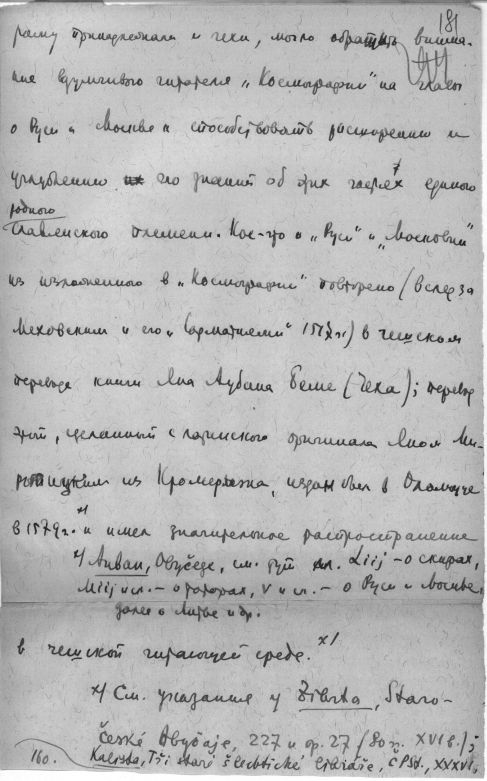 181
рому принадлежали и чехи, могло обратить внима-
ние вдумчивого читателя „Космографии" на главы
о Руси и Москве и способствовать расширению и
углублению его знаний об этих частях единого
родного
славянского племени. Кое-что о „Руси" и „Московии"
из изложенного в „Космографии" повторено (вслед за
Меховским и его „Сарматией" 1517 г.) в чешском
переводе книги Яна Аубана Беме (Чеха); перевод
этот, сделанный с латинского оригинала Яном Ми-
ротицким из Кромержижа, издан был в Оломоуце
в 1579 г. x) и имел значительное распространение
x) Аубан, Обычеје, см. гл. Liij – о скифах,
Miij и сл. – о татарах, V и сл. – о Руси и Москве,
далее о Литве и др.
в чешской читающей среде. x)
x) См. указания у Zíbrta, Staro-
české obyčeje, 227 и ср. 27 (80 гг. XVI в.);
160. Kalista, Tři staré šlechtické libráře, ČPSČ, XXXVI,